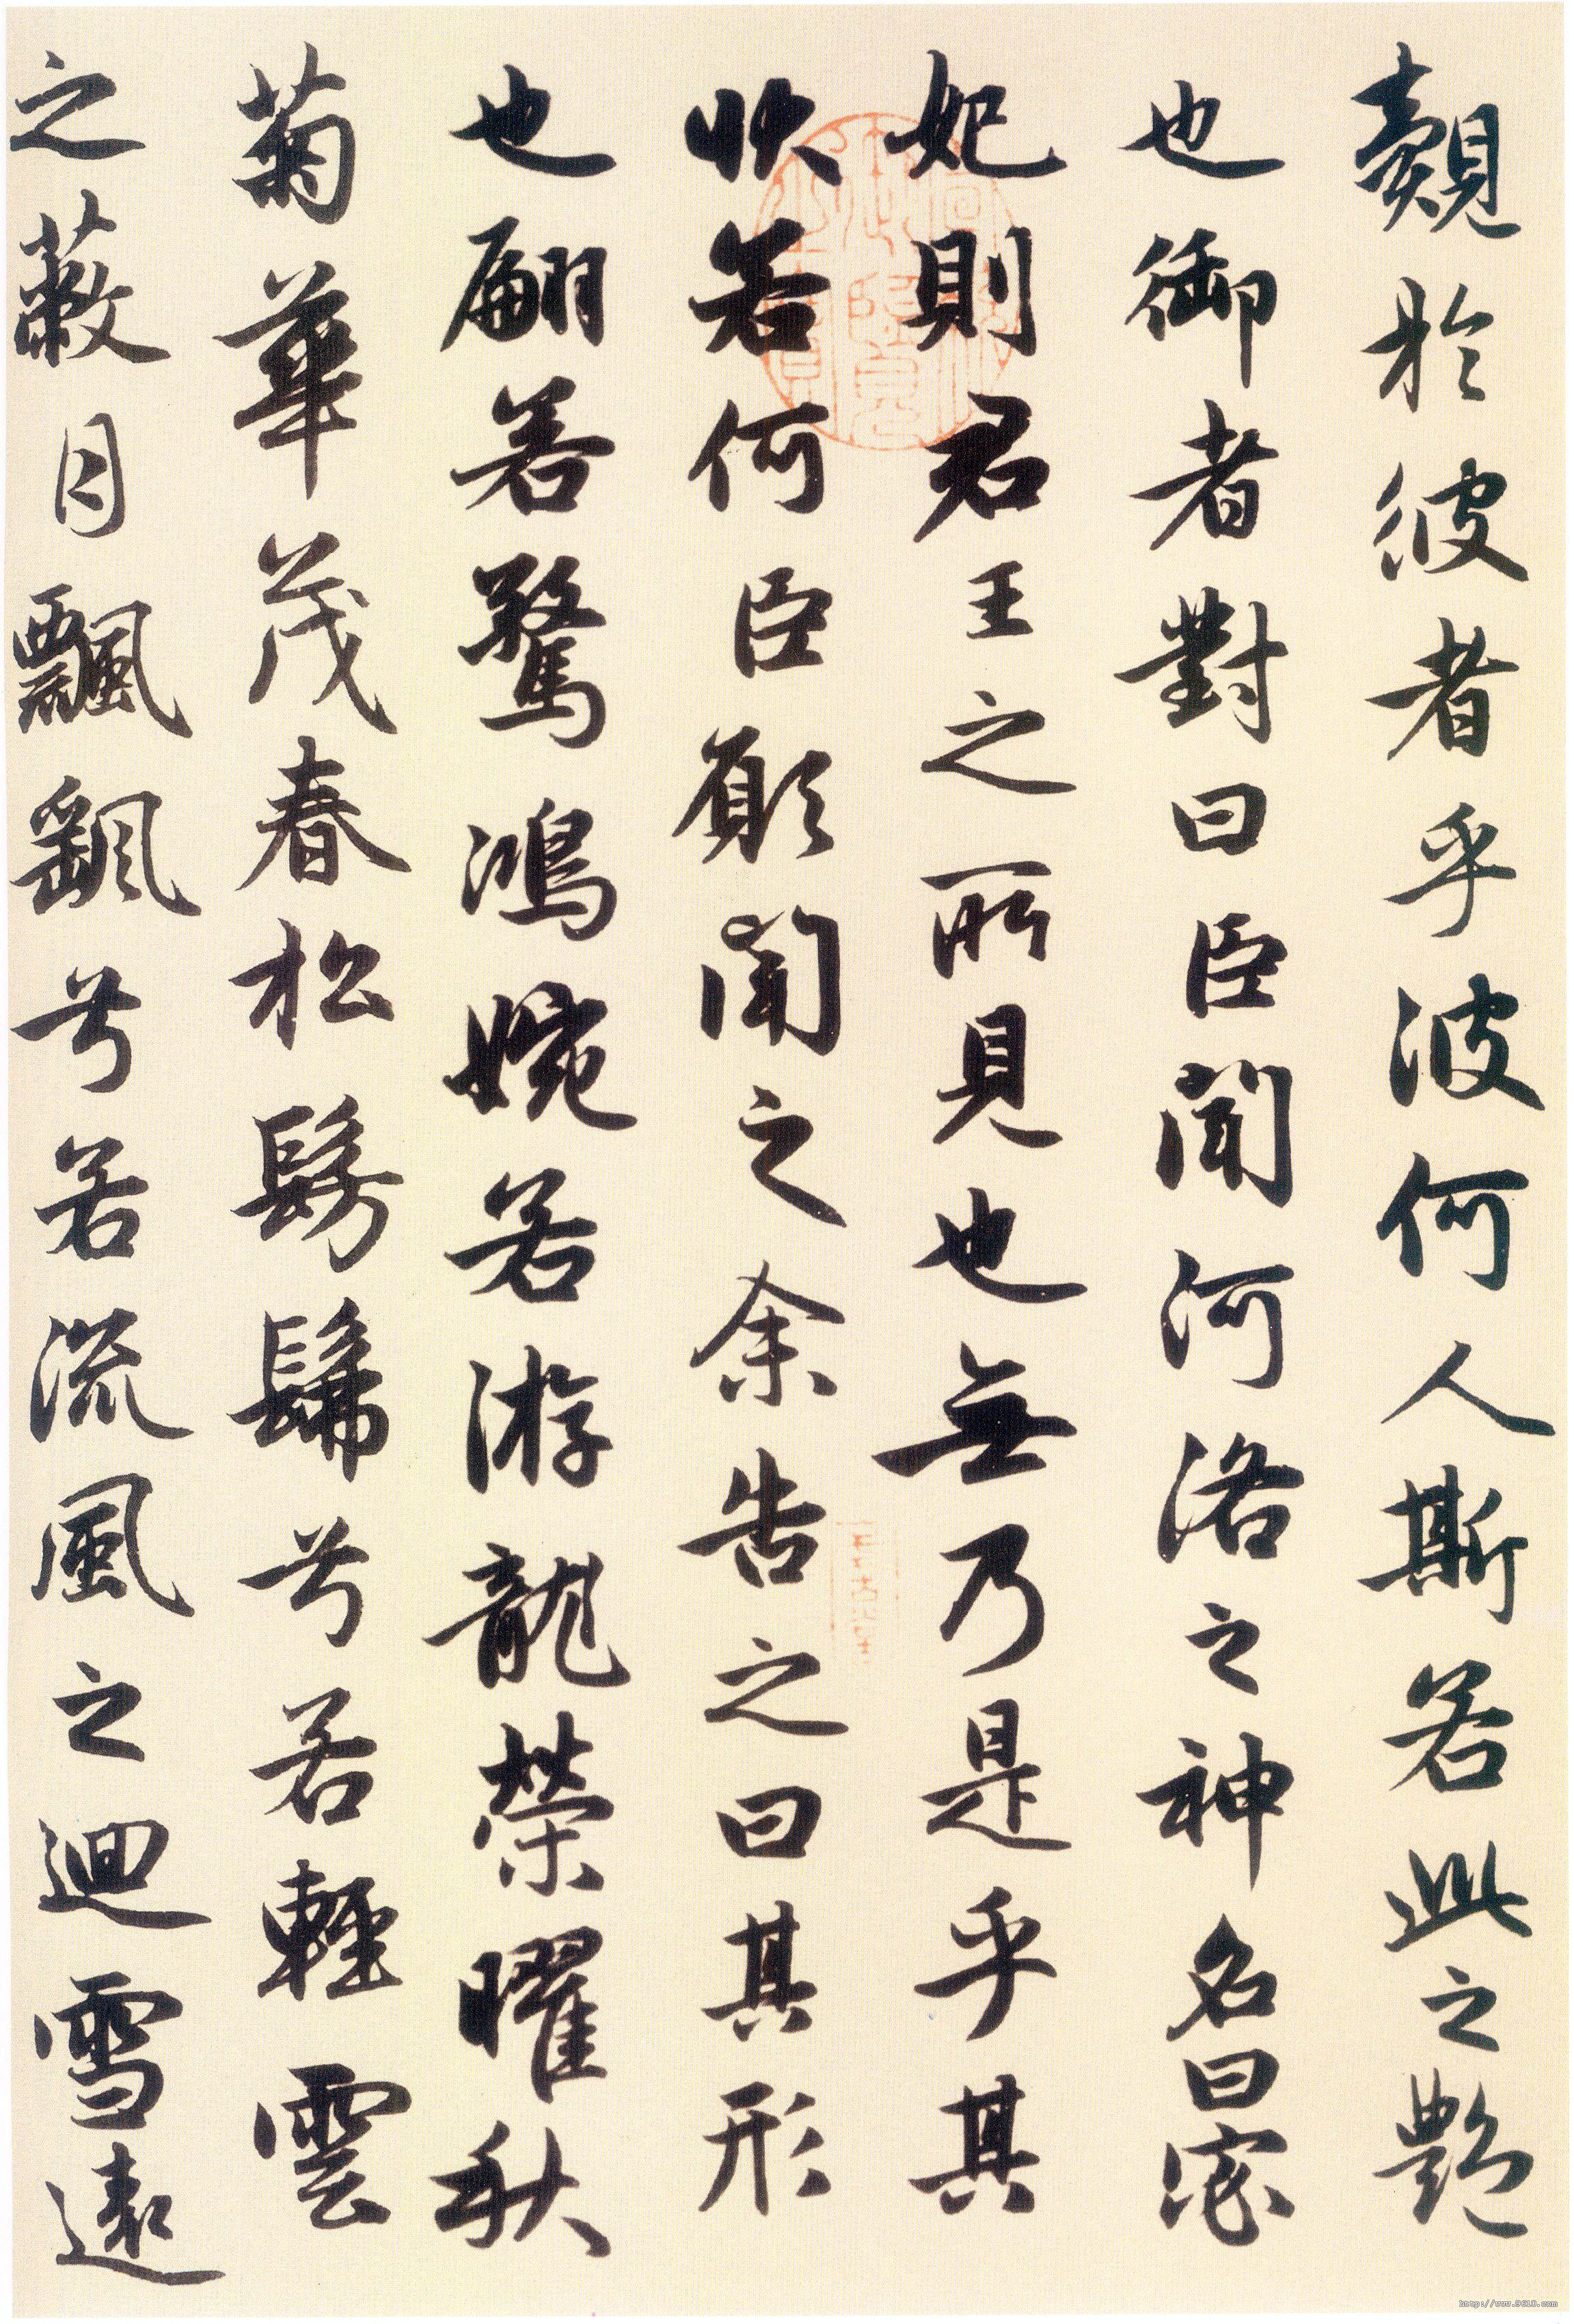 覿於彼者乎波何人斯若此之艷
也御者對曰臣聞河洛之神名曰宓
妃則君王之所見也無乃是乎其
狀若何臣願聞之余告之曰其形
也翩若驚鴻婉若游龍榮曜秋
菊華茂春松髣髴兮若輕雲
之蔽月飄颻兮若流風之迴雪遠
http://www.9610.com